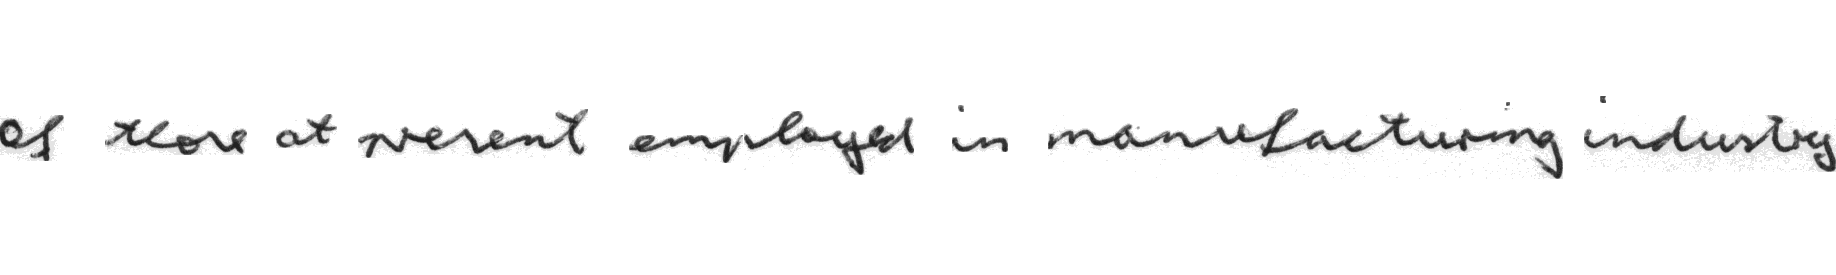 Of those at present employed in manufacturing industry